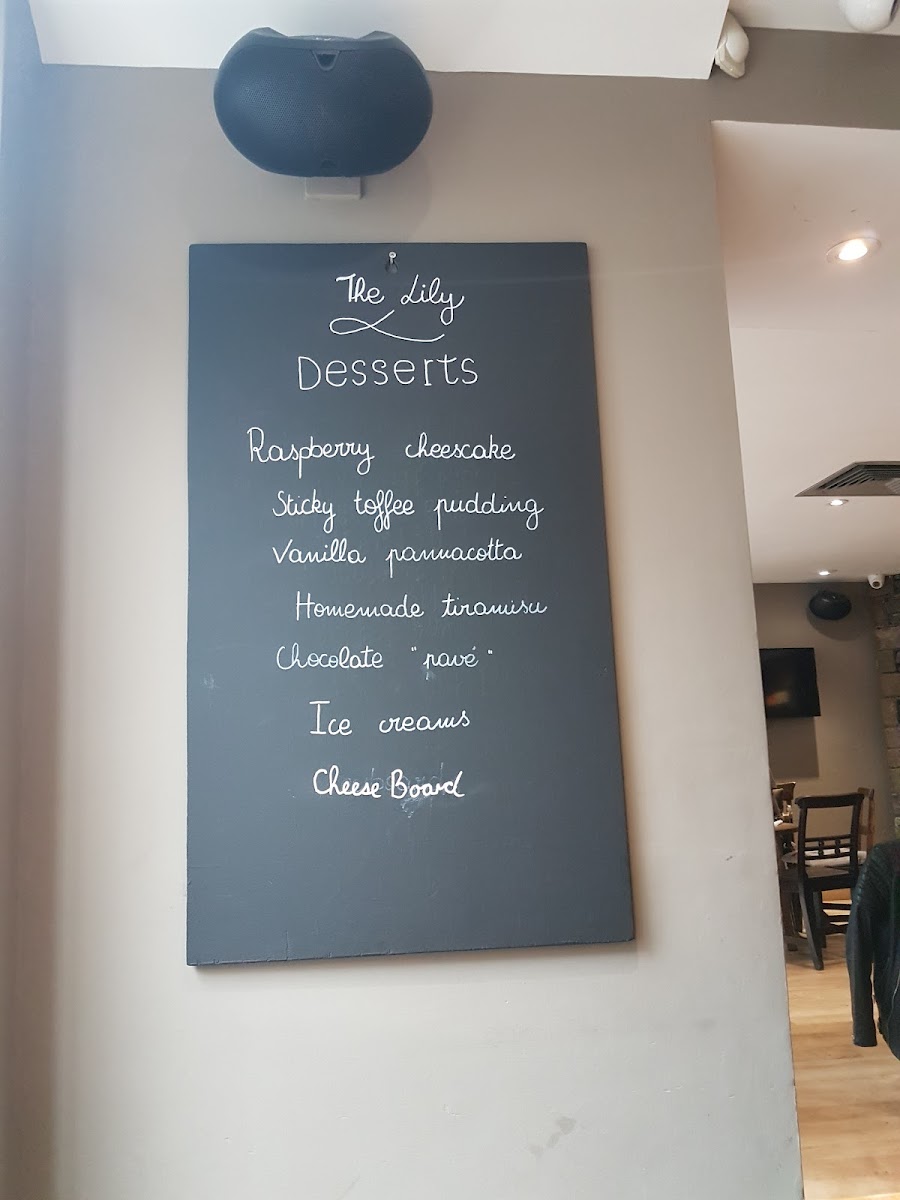 The Lily
Desserts
Raspberry cheescake
Sticky toffee pudding
Vanilla pannacotta
Homemade tiramisu
Chocolate "pavé"
Ice creams
Cheese Board